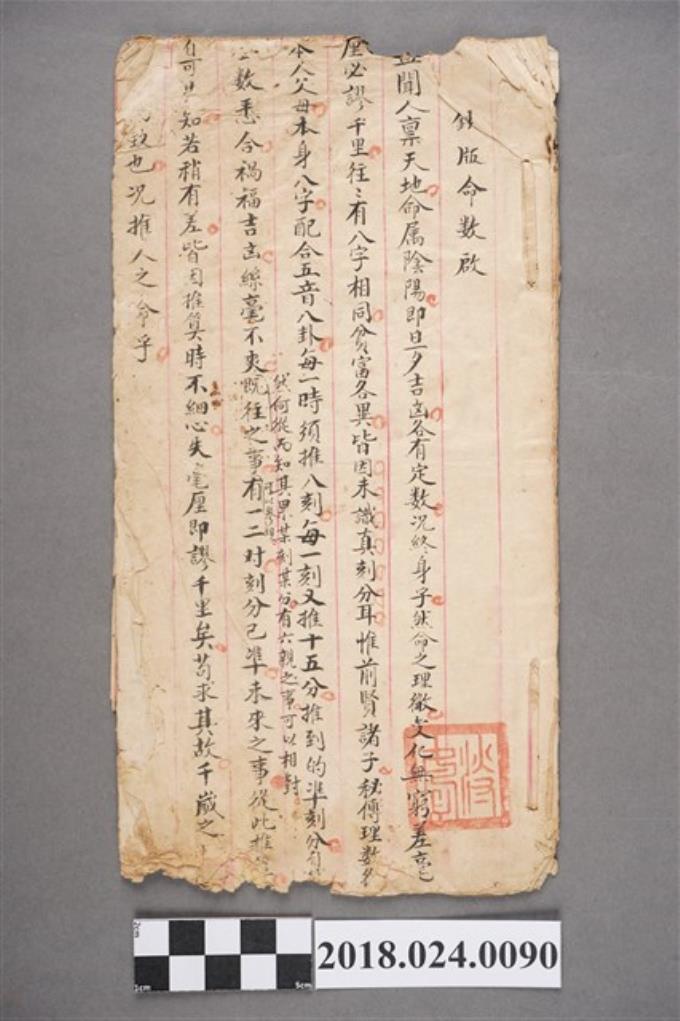 鉄版命数啟
聞人稟天地命属陰陽即旦夕吉凶各有定数況終身乎然命之理微变化無窮差毫
厘必謬千里往〻有八字相同貧富各異皆因未識真刻分耳惟前賢諸子秘傳理数
本人父母本身八字配合五音八卦每一時須推八刻每一刻又推十五分推到的準刻分
然何從而知其果某刻某分有六親之事可以相對
数悉合禍福吉凶絲毫不爽既往之事有一二对刻分已準未來之事從此推
可 知若稍有差皆因推算時不細心失毫厘即謬千里矣苟求其故千歲之
致也況推人之命乎
2018.024.0090
2cm
1cm
5cm